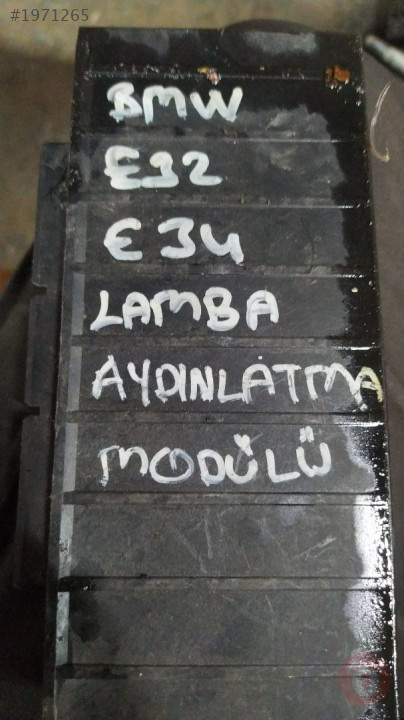 #1971265
BMW
E32
E34
LAMBA
AYDINLATMA
MODÜLÜ